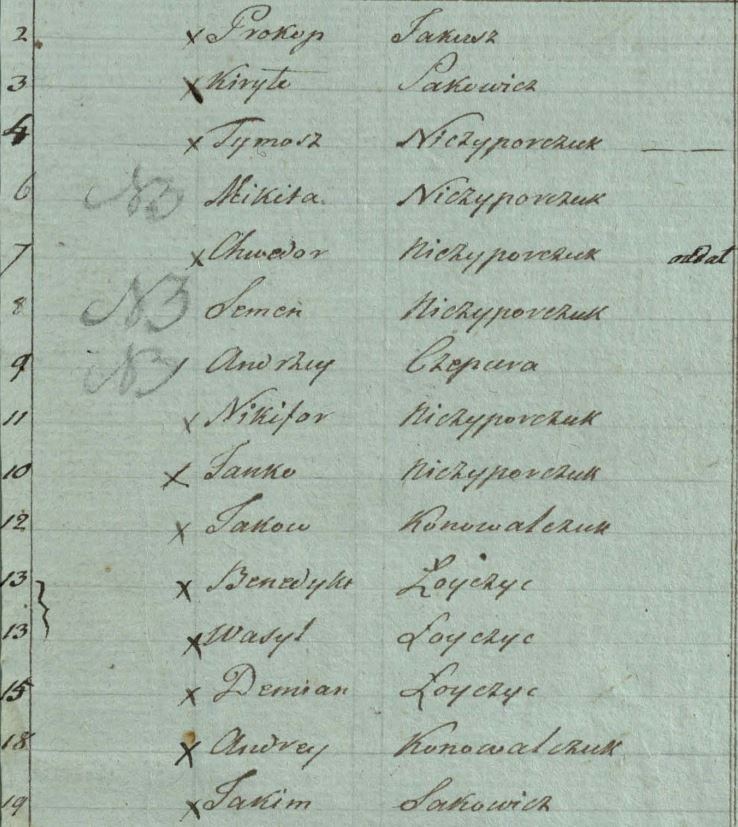 2 x Prokop Jakusz
3 x Kiryło Sakowicz
4 x Tymosz Niczyporczuk —
6 NB Mikita Niczyporczuk
7 x Chwedor Niczyporczuk oddał
8 NB Semen Niczyporczuk
9 NB Andrzey Czepura
11 x Nikifor Niczyporczuk
10 x Janko Niczyporczuk
12 x Jakow Konowalczuk
13 x Benedykt Łoyczyc
13 x Wasyl Łoyczyc
15 x Demian Łoyczyc
18 x Andrey Konowalczuk
19 x Jakim Sakowicz